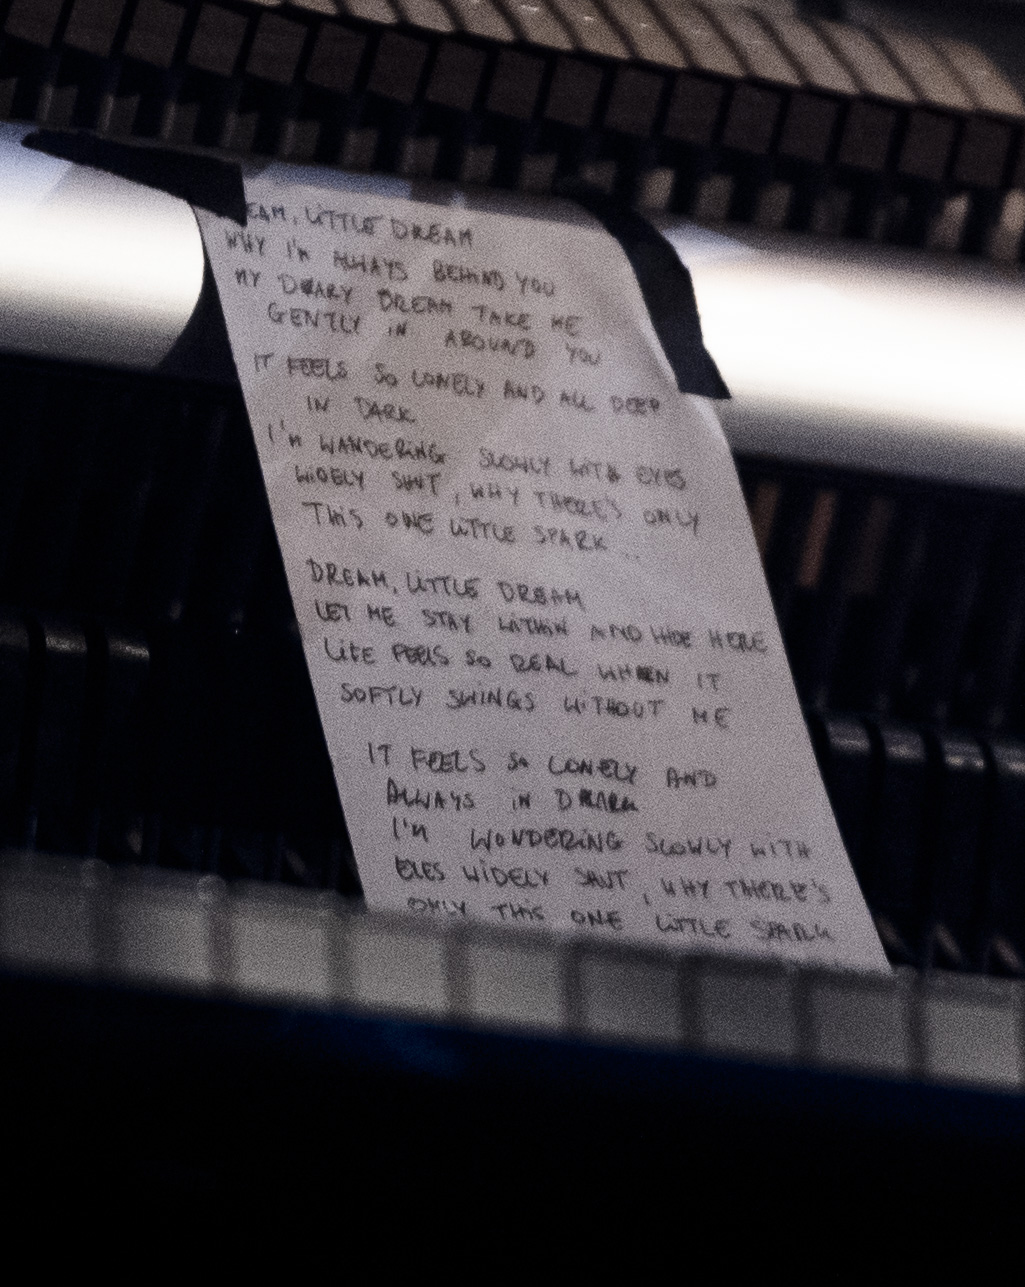 EAM, LITTLE DREAM
WHY I'M ALWAYS BEHIND YOU
MY DEARY DREAM TAKE ME
GENTLY IN AROUND YOU
IT FEELS SO LONELY AND ALL DEEP
IN DARK
I'M WANDERING SLOWLY WITH EYES
WIDELY SHUT, WHY THERE'S ONLY
THIS ONE LITTLE SPARK...
DREAM, LITTLE DREAM
LET ME STAY WITHIN AND HIDE HERE
LIFE FEELS SO REAL WHEN IT
SOFTLY SWINGS WITHOUT ME
IT FEELS SO LONELY AND
ALWAYS IN
I'M WONDERING SLOWLY WITH
EYES WIDELY SHUT, WHY THERE'S
ONLY THIS ONE LITTLE SPARK